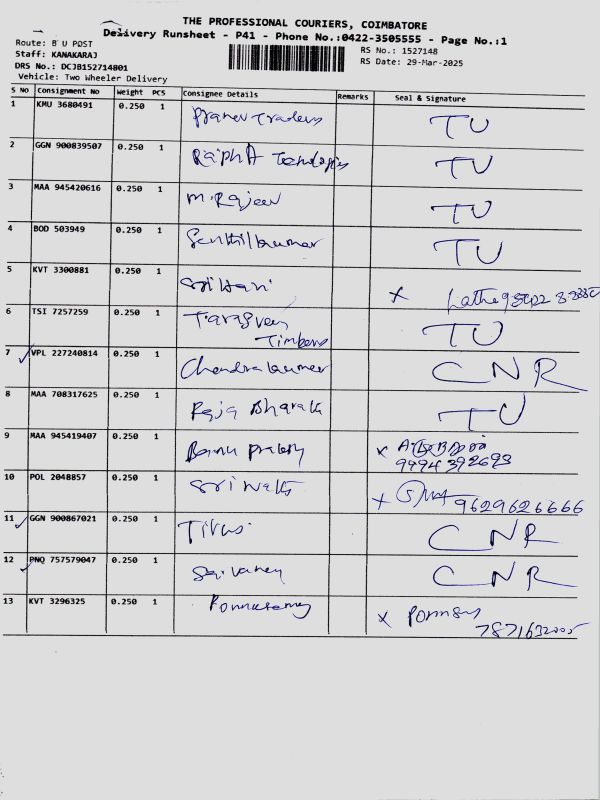 THE PROFESSIONAL COURIERS, COIMBATORE
Delivery Runsheet - P41 - Phone No.:0422-3505555 - Page No.:1
Route: B U POST
Staff: KANAKARAJ
DRS No.: DCJB152714801
Vehicle: Two Wheeler Delivery
RS No.: 1527148
RS Date: 29-Mar-2025
S No Consignment No Weight PCS Consignee Details Remarks Seal & Signature
1 KMU 3680491 0.250 1 Pranev Traders TU
2 GGN 900839507 0.250 1 Ralph A Technologies TU
3 MAA 945420616 0.250 1 M. Rajeev TU
4 BOD 503949 0.250 1 Senthilkumar TU
5 KVT 3300881 0.250 1 Sri Hari x Latha
6 TSI 7257259 0.250 1 Timbers TU
7 VPL 227240814 0.250 1 Chandrakumar CNR
8 MAA 708317625 0.250 1 Raja Bharath TU
9 MAA 945419407 0.250 1 x
9994392693
10 POL 2048857 0.250 1 Sri x 9629626666
11 GGN 900867021 0.250 1 CNR
12 PNQ 757579047 0.250 1 CNR
13 KVT 3296325 0.250 1 Ponnusamy x